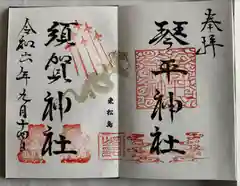 奉拝
琴平神社
東松島
須賀神社
令和六年九月十四日